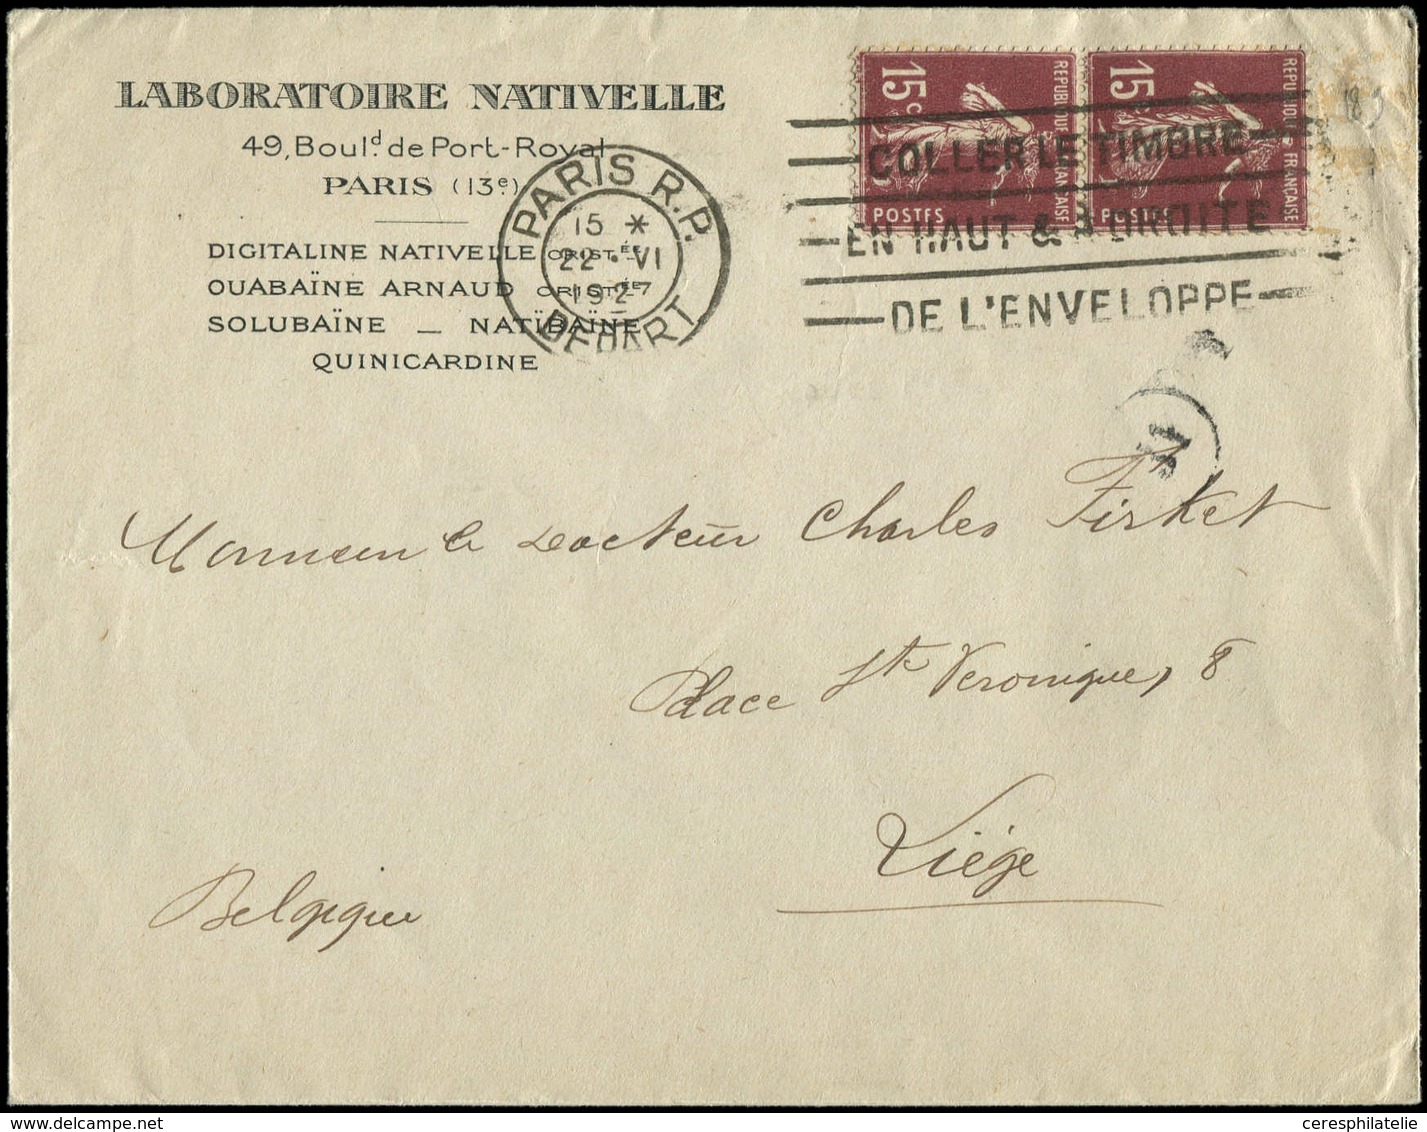 LABORATOIRE NATIVELLE
49, Boul.d de Port-Royal
PARIS (13e)
DIGITALINE NATIVELLE CRISTée
OUABAÏNE ARNAUD CRISTée
SOLUBAÏNE _ NATÏBAÏNE
QUINICARDINE
PARIS R.P.
15 *
22 · VI
192
DEPART
15c REPUBLIQUE FRANÇAISE POSTES
15c REPUBLIQUE FRANÇAISE POSTES
COLLER LE TIMBRE
EN HAUT & A DROITE
DE L'ENVELOPPE
Monsieur le Docteur Charles Firket
Place Ste Veronique, 8
Liége
Belgique
ceresphilatelie